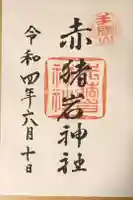 赤猪岩神社
令和四年六月十日